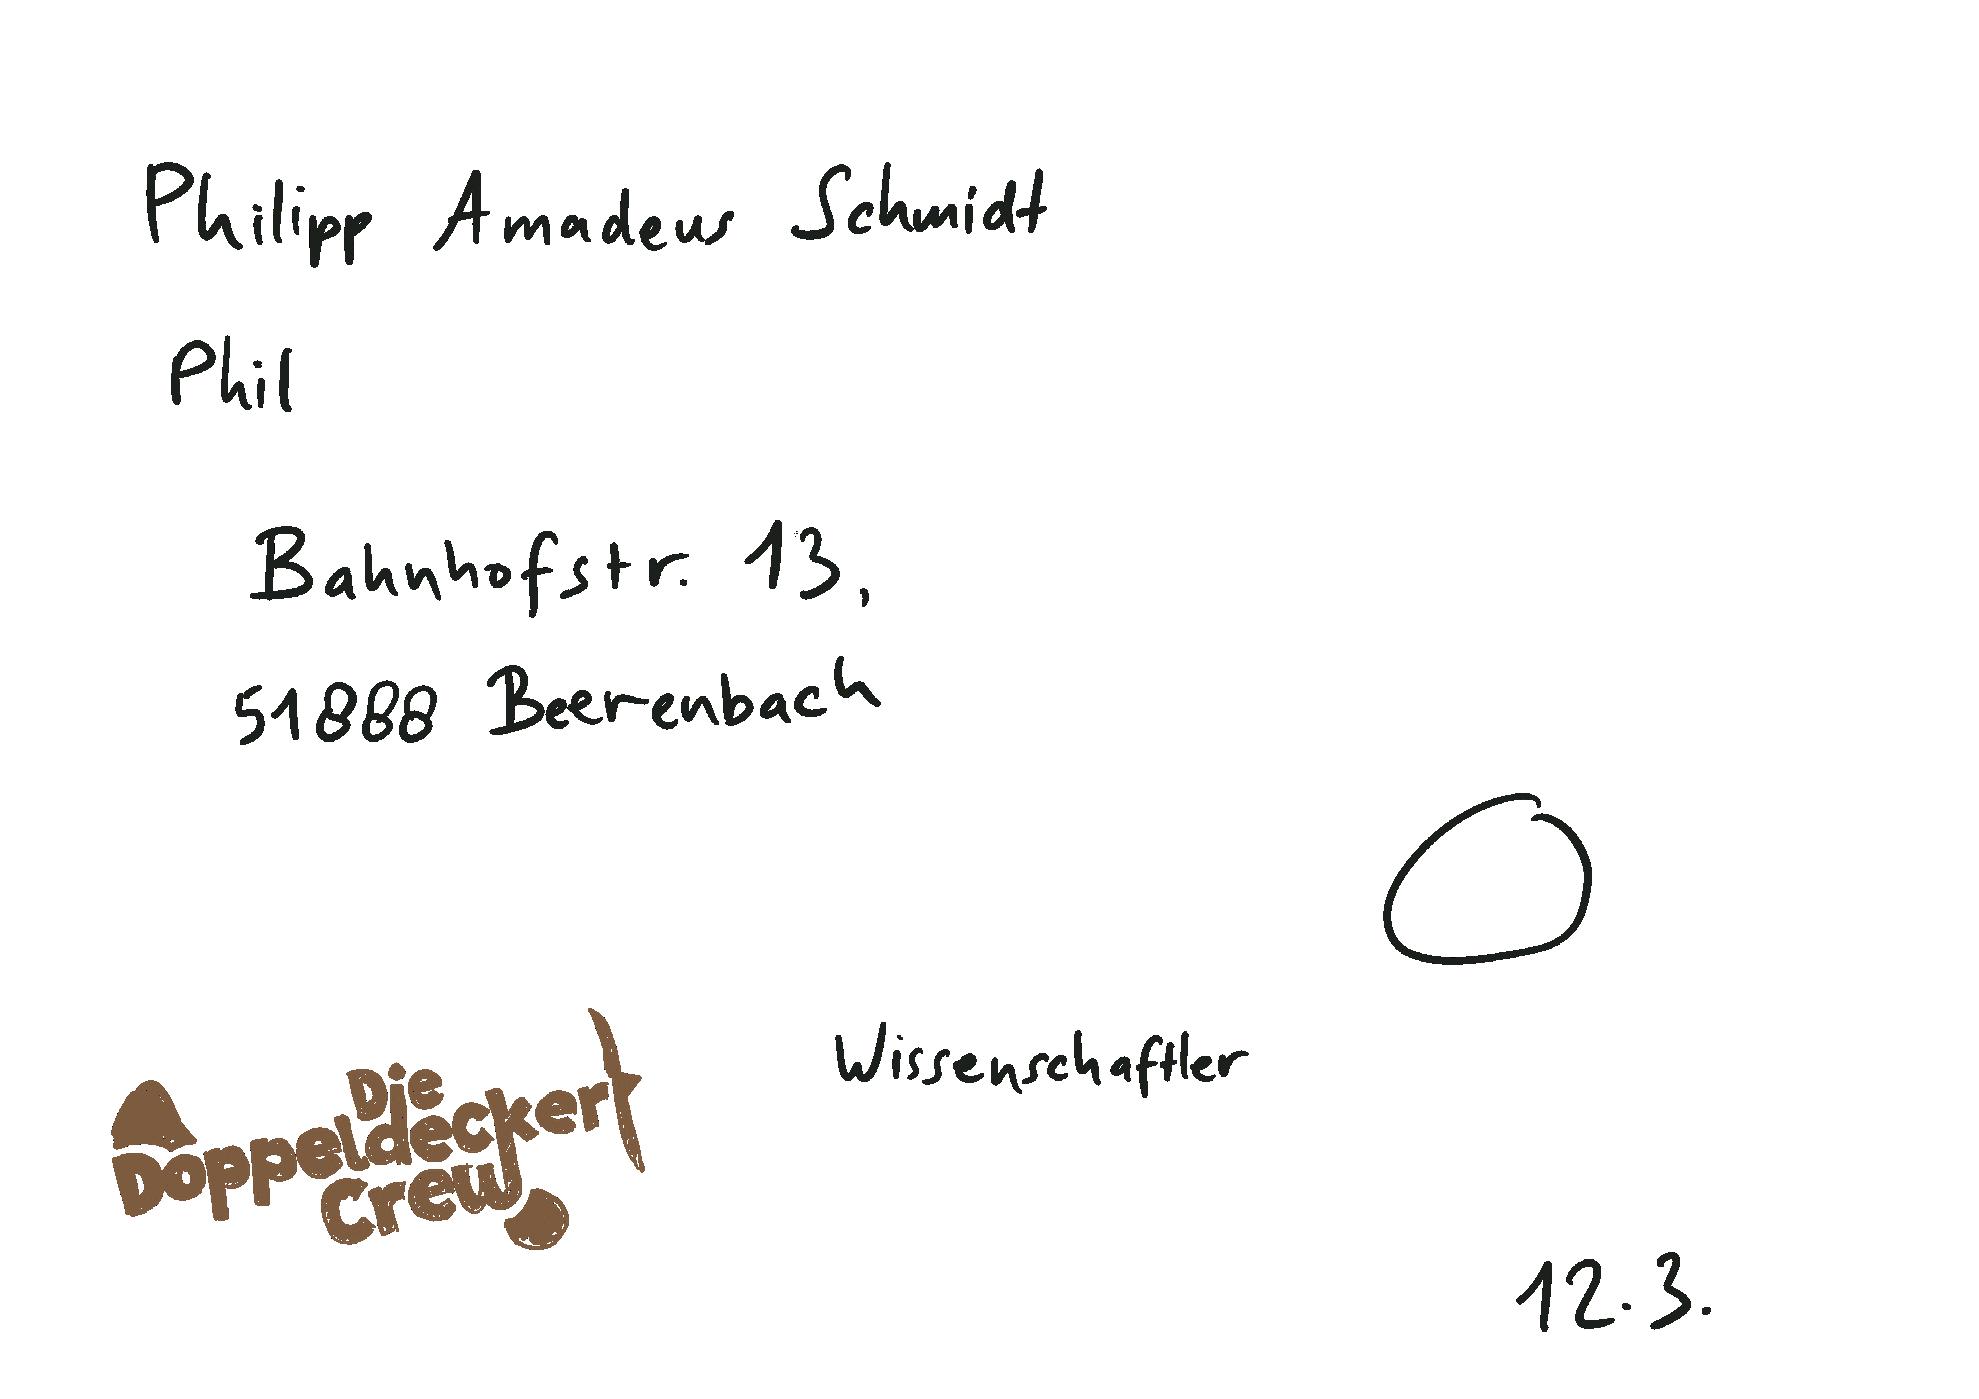 Philipp Amadeus Schmidt
Phil
Bahnhofstr. 13,
51888 Beerenbach
Wissenschaftler
Die
Doppeldecker
Crew
12.3.